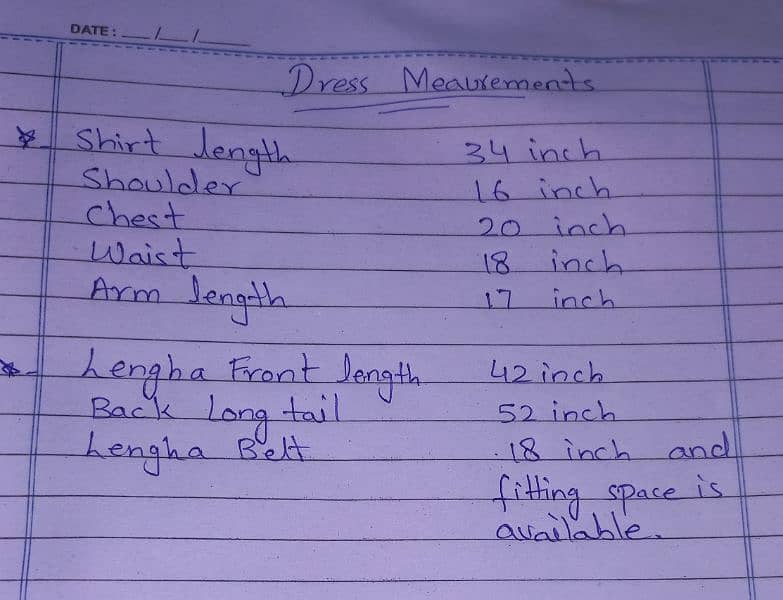 DATE: __/__/____
Dress Meaurements
* Shirt length 34 inch
Shoulder 16 inch
Chest 20 inch
Waist 18 inch
Arm length 17 inch
* Lengha Front length 42 inch
Back long tail 52 inch
Lengha Belt 18 inch and
fitting space is
available.